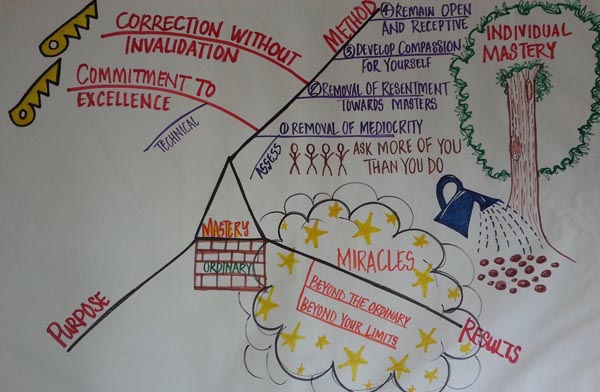 CORRECTION WITHOUT
INVALIDATION
COMMITMENT TO
EXCELLENCE
TECHNICAL
METHOD
④ REMAIN OPEN
AND RECEPTIVE
③ DEVELOP COMPASSION
FOR YOURSELF
② REMOVAL OF RESENTMENT
TOWARDS MASTERS
① REMOVAL OF MEDIOCRITY
ASSESS
ASK MORE OF YOU
THAN YOU DO
INDIVIDUAL
MASTERY
MASTERY
ORDINARY
MIRACLES
BEYOND THE ORDINARY
BEYOND YOUR LIMITS
PURPOSE
RESULTS